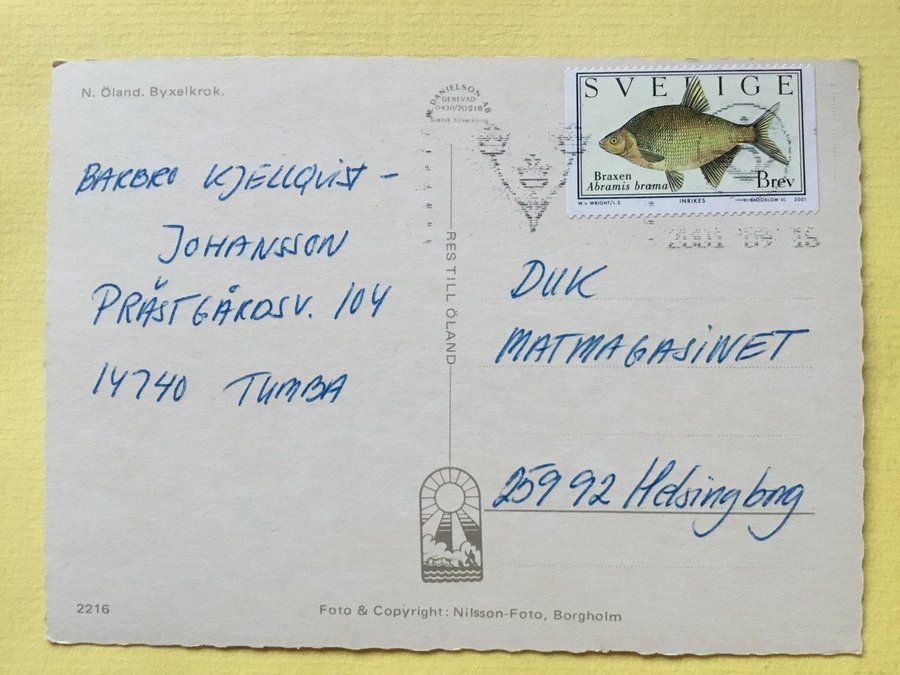 N. Öland. Byxelkrok.
DANIELSON AB
GENEVAD
0430/70218
Svensk tillverkning
SVERIGE
Braxen
Abramis brama
Brev
W. v. WRIGHT/L S.
INRIKES
SJÖÖBLOM SC. 2001
2001 09 16
BARBRO KJELLQVIST -
JOHANSSON
PRÄSTGÅRDSV. 104
14740 TUMBA
RES TILL ÖLAND
DUK
MATMAGASINET
25992 Helsingborg
2216
Foto & Copyright: Nilsson-Foto, Borgholm